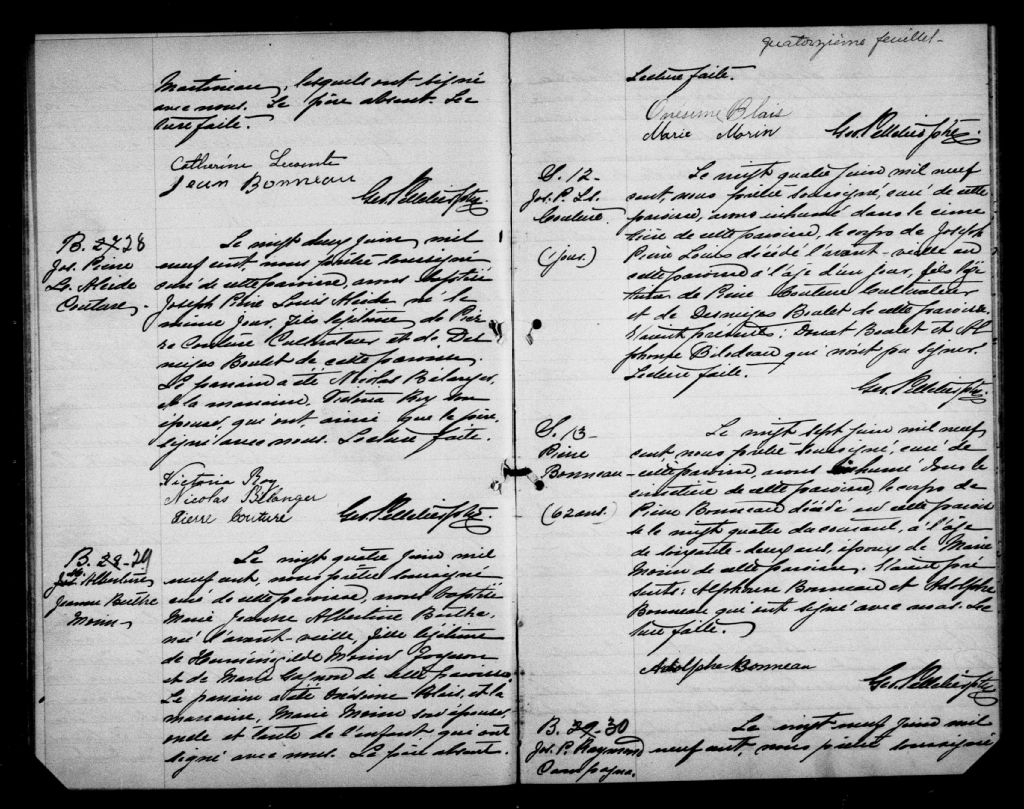 Martineau, lesquels ont signé
avec nous. Le père absent. Lec
ture faite.
Catherine Lecomte
Jean Bonneau
Geo. Pelletier Ptre.
B. 27 28
Jos. Pierre
Ls. Alcide
Couture
Le vingt deux juin mil
neuf cent, nous prêtre soussigné
curé de cette paroisse, avons baptisé
Joseph Pierre Louis Alcide né le
même jour, fils légitime de Pier
re Couture Cultivateur et de Der
neiges Boulet de cette paroisse.
Le parrain a été Nicolas Bélanger,
et la marraine, Victoria Roy son
épouse, qui ont, ainsi que le père,
signé avec nous. Lecture faite.
Victoria Roy
Nicolas Bélanger
Pierre Couture
Geo. Pelletier Ptre.
B. 28-29
Albertine
Jeanne Berthe
Morin
Le vingt quatre juin mil
neuf cent, nous prêtre soussigné
curé de cette paroisse, avons baptisé
Marie Jeanne Albertine Berthe,
née l'avant-veille, fille légitime
de Herménégilde Morin
et de Marie Gagnon de cette paroisse.
Le parrain a été Onésime Blais, et la
marraine, Marie Morin son épouse,
oncle et tante de l'enfant, qui ont
signé avec nous. Le père absent.
quatorzième feuillet-
Lecture faite.
Onésime Blais
Marie Morin
Geo. Pelletier Ptre.
S. 12-
Jos. P. Ls.
Couture.
(1 jour.)
Le vingt quatre juin mil neuf
cent, nous prêtre soussigné, curé de cette
paroisse, avons inhumé dans le cime
tière de cette paroisse, le corps de Joseph
Pierre Louis décédé l'avant-veille en
cette paroisse à l'âge d'un jour, fils légi
time de Pierre Couture Cultivateur
et de Derneiges Boulet de cette paroisse.
Etaient présents: Donat Boulet et Al
phonse Bilodeau qui n'ont pu signer.
Lecture faite.
Geo. Pelletier Ptre.
S. 13-
Pierre
Bonneau
(62 ans.)
Le vingt sept juin mil neuf
cent, nous prêtre soussigné, curé de
cette paroisse, avons inhumé dans le
cimetière de cette paroisse, le corps de
Pierre Bonneau décédé en cette parois
se le vingt quatre du courant, à l'âge
de soixante-deux ans, époux de Marie
Morin de cette paroisse. Etaient pré
sents: Alphonse Bonneau et Adolphe
Bonneau qui ont signé avec nous. Lec
ture faite.
Adolphe Bonneau
Geo. Pelletier Ptre
B. 29-30
Jos. P. Raymond
Campagna.
Le vingt neuf juin mil
neuf cent, nous prêtre soussigné